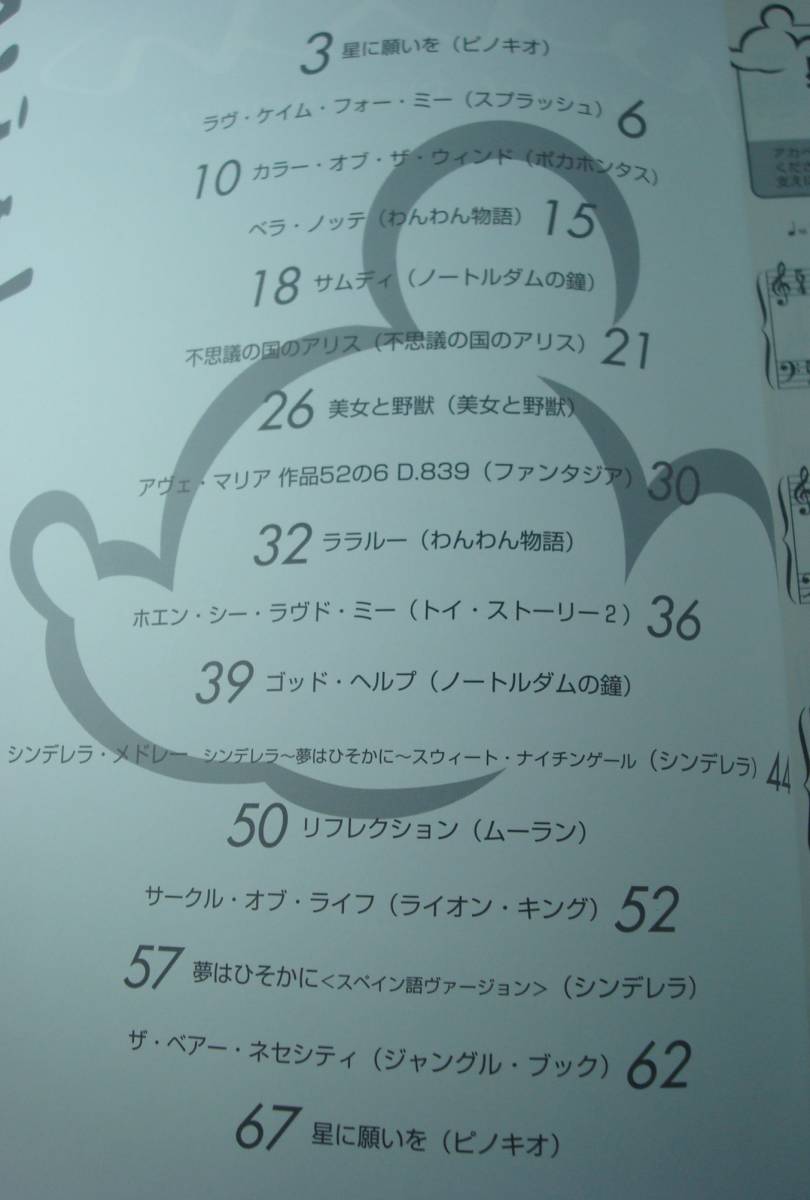 3 星に願いを（ピノキオ）
ラヴ・ケイム・フォー・ミー（スプラッシュ） 6
10 カラー・オブ・ザ・ウィンド（ポカホンタス）
ベラ・ノッテ（わんわん物語） 15
18 サムディ（ノートルダムの鐘）
不思議の国のアリス（不思議の国のアリス） 21
26 美女と野獣（美女と野獣）
アヴェ・マリア 作品52の6 D.839（ファンタジア） 30
32 ララルー（わんわん物語）
ホエン・シー・ラヴド・ミー（トイ・ストーリー2） 36
39 ゴッド・ヘルプ（ノートルダムの鐘）
シンデレラ・メドレー シンデレラ～夢はひそかに～スウィート・ナイチンゲール（シンデレラ） 44
50 リフレクション（ムーラン）
サークル・オブ・ライフ（ライオン・キング） 52
57 夢はひそかに＜スペイン語ヴァージョン＞（シンデレラ）
ザ・ベアー・ネセシティ（ジャングル・ブック） 62
67 星に願いを（ピノキオ）
アカペ
くださ
支えに